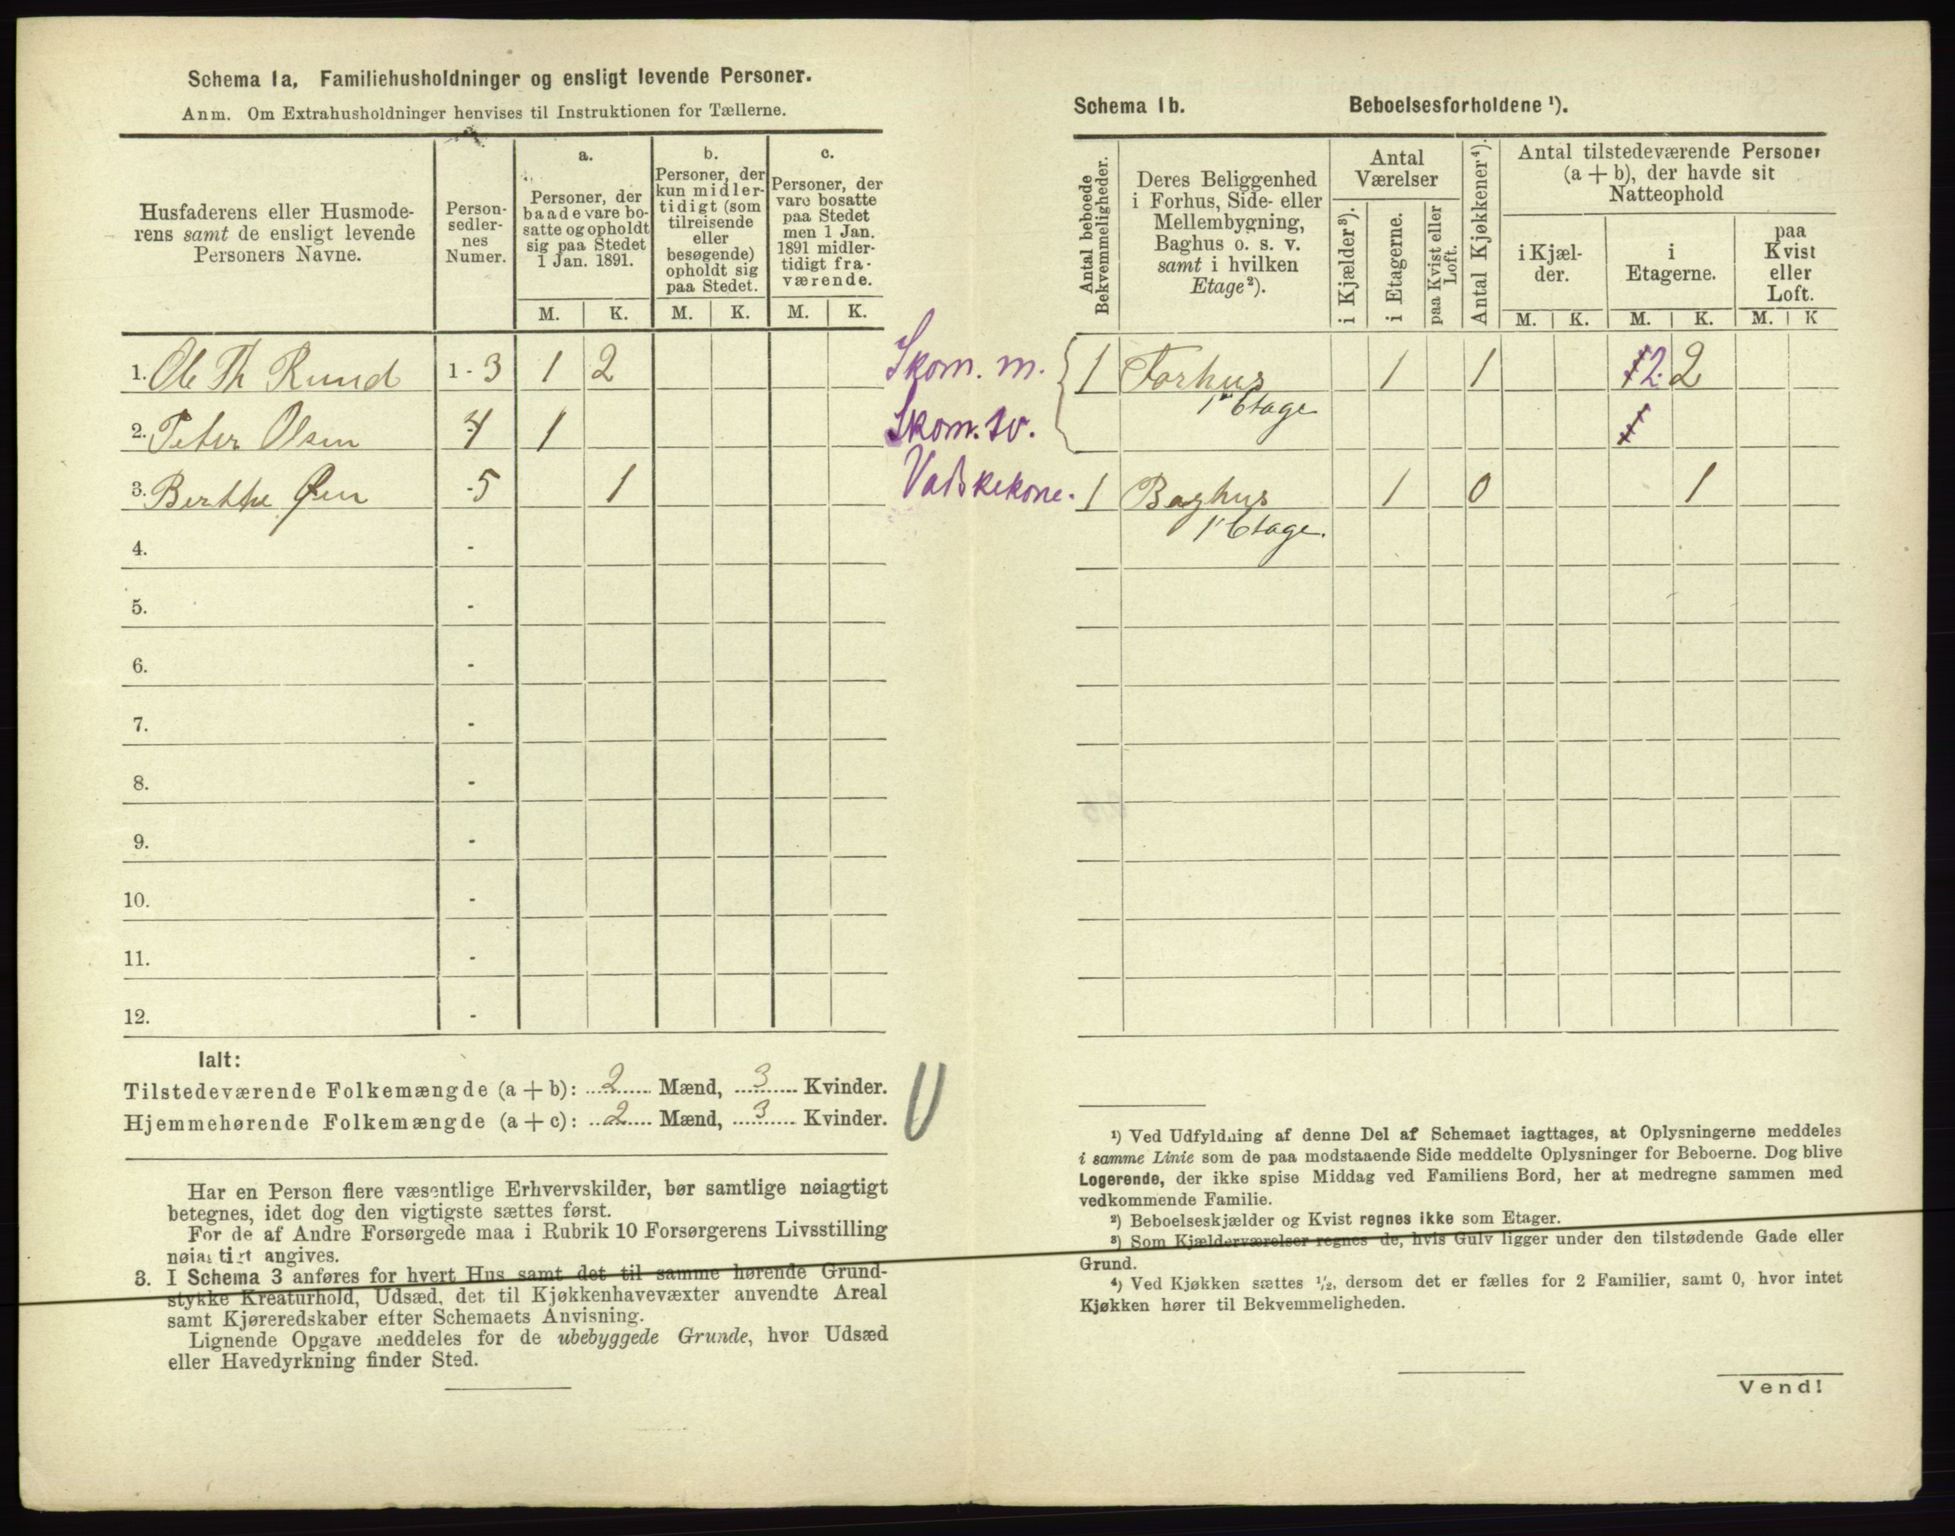 Schema 1a, Familiehusholdninger og ensligt levende Personer.
Anm. Om Extrahusholdninger henvises til Instruktionen for Tællerne.
Husfaderens eller Husmode-
rens samt de ensligt levende
Personers Navne.
Person-
sedler-
nes
Numer.
a.
Personer, der
baade vare bo-
satte og opholdt
sig paa Stedet
1 Jan. 1891.
b.
Personer, der
kun midler-
tidigt (som
tilreisende
eller
besøgende)
opholdt sig
paa Stedet.
c.
Personer, der
vare bosatte
paa Stedet
men 1 Jan.
1891 midler-
tidigt fra-
værende.
M. K. M. K. M. K.
1. Ole Th Rund 1 - 3 1 2 Skom. m.
2. Peter Olsen 4 1 Skom. sv.
3. Berthe - 5 1 Vadskekone.
4. -
5. -
6. -
7. -
8. -
9. -
10. -
11. -
12. -
Ialt:
Tilstedeværende Folkemængde (a + b): 2 Mænd, 3 Kvinder.
Hjemmehørende Folkemængde (a + c): 2 Mænd, 3 Kvinder.
Har en Person flere væsentlige Erhvervskilder, bør samtlige nøiagtigt
betegnes, idet dog den vigtigste sættes først.
For de af Andre Forsørgede maa i Rubrik 10 Forsørgerens Livsstilling
nøiagtigt angives.
3. I Schema 3 anføres for hvert Hus samt det til samme hørende Grund-
stykke Kreaturhold, Udsæd, det til Kjøkkenhavevæxter anvendte Areal
samt Kjøreredskaber efter Schemaets Anvisning.
Lignende Opgave meddeles for de ubebyggede Grunde, hvor Udsæd
eller Havedyrkning finder Sted.
Schema 1b. Beboelsesforholdene ¹).
Antal beboede
Bekvemmeligheder.
Deres Beliggenhed
i Forhus, Side- eller
Mellembygning,
Baghus o. s. v.
samt i hvilken
Etage²).
Antal
Værelser
i Kjælder³).
i Etagerne.
paa Kvist eller
Loft.
Antal Kjøkkener⁴).
Antal tilstedeværende Personer
(a + b), der havde sit
Natteophold
i Kjæl-
der.
i
Etagerne.
paa
Kvist
eller
Loft.
M. K. M. K. M. K
1 Forhus 1 1 1 2. 2
1ste Etage 1
1 Baghus 1 0 1
1ste Etage.
¹) Ved Udfyldning af denne Del af Schemaet iagttages, at Oplysningerne meddeles
i samme Linie som de paa modstaaende Side meddelte Oplysninger for Beboerne. Dog blive
Logerende, der ikke spise Middag ved Familiens Bord, her at medregne sammen med
vedkommende Familie.
²) Beboelseskjælder og Kvist regnes ikke som Etager.
³) Som Kjælderværelser regnes de, hvis Gulv ligger under den tilstødende Gade eller
Grund.
⁴) Ved Kjøkken sættes ½, dersom det er fælles for 2 Familier, samt 0, hvor intet
Kjøkken hører til Bekvemmeligheden.
Vend!